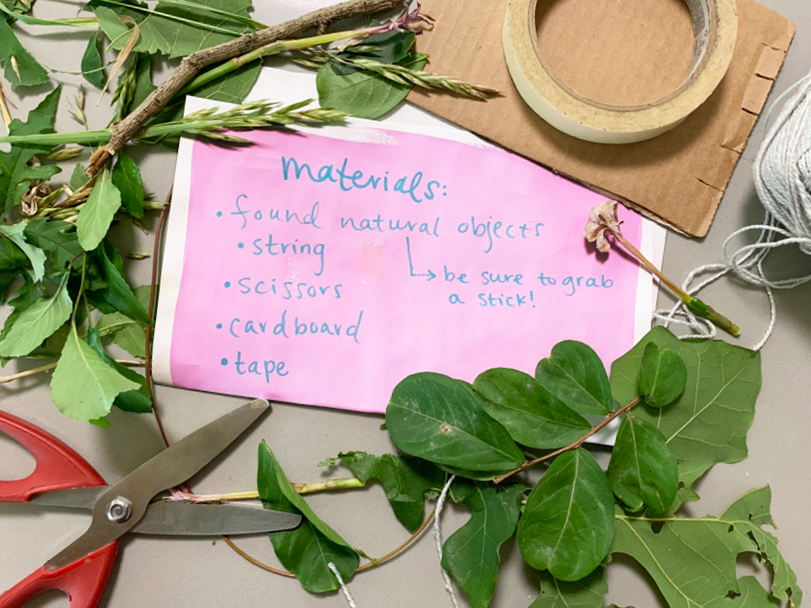 materials:
• found natural objects
• string
be sure to grab
a stick!
• scissors
• cardboard
• tape